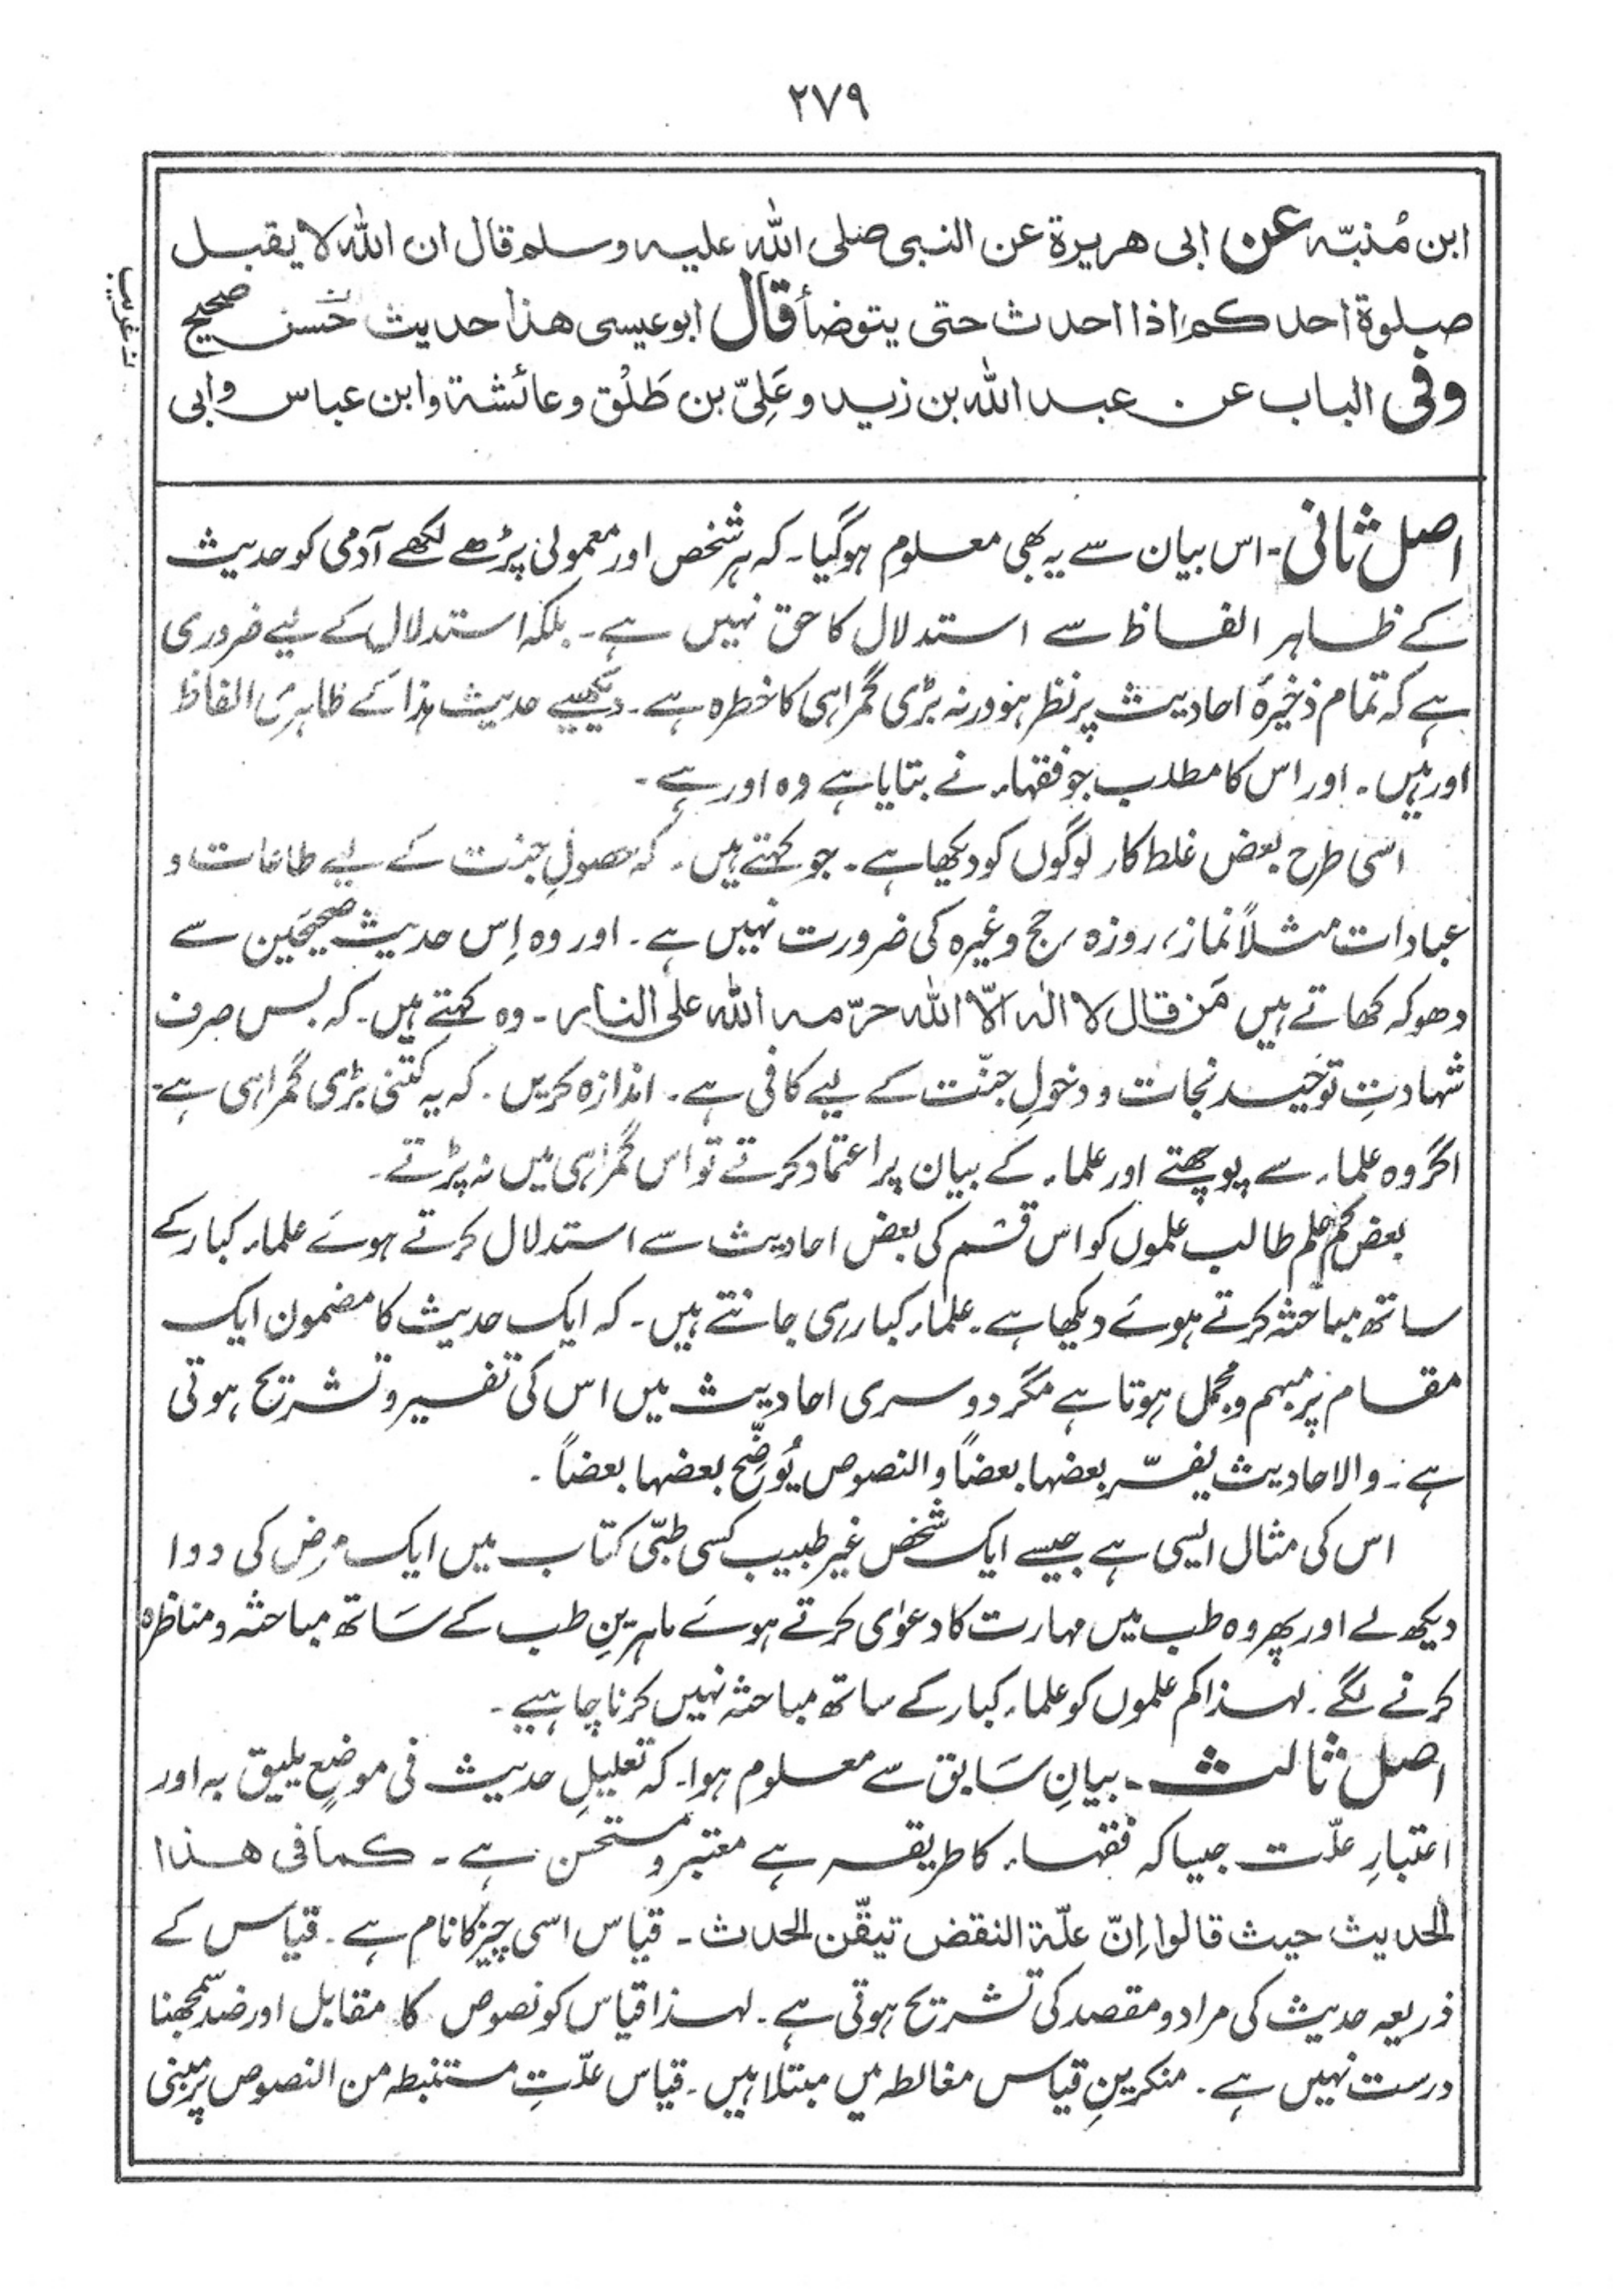 ۲۷۹
ابن مُنبّہ عن ابی هريرة عن النبی صلی اللہ علیہ وسلم قال ان اللہ لا یقبل
صلوۃ احدکم اذا احدث حتی یتوضأ قال ابو عیسی هذا حدیث حَسن صحیح
وفی الباب عن عبد اللہ بن زید و عَلِیّ بن طَلْق و عائشۃ وابن عباس وابی
ن غریب
اصل ثانی - اس بیان سے یہ بھی معلوم ہوگیا۔ کہ ہر شخص اور معمولی پڑھے لکھے آدمی کو حدیث
کے ظاہر الفاظ سے استدلال کا حق نہیں ہے۔ بلکہ استدلال کے لیے ضروری
ہے کہ تمام ذخیرۂ احادیث پر نظر ہو ورنہ بڑی گمراہی کا خطرہ ہے۔ دیکھیے حدیث ہٰذا کے ظاہری الفاظ
اور ہیں۔ اور اس کا مطلب جو فقہاء نے بتایا ہے وہ اور ہے۔
اسی طرح بعض غلط کار لوگوں کو دیکھا ہے۔ جو کہتے ہیں۔ کہ حصولِ جنت کے لیے طاعات و
عبادات مثلاً نماز، روزہ، حج وغیرہ کی ضرورت نہیں ہے۔ اور وہ اِس حدیث صحیحین سے
دھوکہ کھاتے ہیں مَن قال لا الٰہ الّا اللہ حرّمہ اللہ علی النار۔ وہ کہتے ہیں۔ کہ بس صرف
شہادتِ توحید نجات و دخولِ جنّت کے لیے کافی ہے۔ اندازہ کریں۔ کہ یہ کتنی بڑی گمراہی ہے۔
اگر وہ علماء سے پوچھتے اور علماء کے بیان پر اعتماد کرتے تو اس گمراہی میں نہ پڑتے۔
بعض کم علم طالب علموں کو اس قسم کی بعض احادیث سے استدلال کرتے ہوئے علماء کبار کے
ساتھ مباحثہ کرتے ہوئے دیکھا ہے۔ علماء کبار ہی جانتے ہیں۔ کہ ایک حدیث کا مضمون ایک
مقام پر مبہم و مجمل ہوتا ہے مگر دوسری احادیث میں اس کی تفسیر و تشریح ہوتی
ہے۔ والاحادیث یفسّر بعضها بعضاً والنصوص یُوَضِّح بعضها بعضاً۔
اس کی مثال ایسی ہے جیسے ایک شخص غیر طبیب کسی طبّی کتاب میں ایک مرض کی دوا
دیکھ لے اور پھر وہ طب میں مہارت کا دعوٰی کرتے ہوئے ماہرینِ طب کے ساتھ مباحثہ و مناظرہ
کرنے لگے۔ لہٰذا کم علموں کو علماء کبار کے ساتھ مباحثہ نہیں کرنا چاہیے۔
اصل ثالث - بیانِ سابق سے معلوم ہوا۔ کہ تعلیلِ حدیث فی موضعٍ یلیق بہ اور
اعتبارِ علّت جیسا کہ فقہاء کا طریقہ ہے معتبر و مستحسن ہے۔ کما فی هذا
الحدیث حیث قالوا اِنّ علّۃ النقض تیقّن الحدث۔ قیاس اسی چیز کا نام ہے۔ قیاس کے
ذریعہ حدیث کی مراد و مقصد کی تشریح ہوتی ہے۔ لہٰذا قیاس کو نصوص کا مقابل اور ضد سمجھنا
درست نہیں ہے۔ منکرینِ قیاس مغالطہ میں مبتلا ہیں۔ قیاس علّتِ مستنبطہ من النصوص پر مبنی